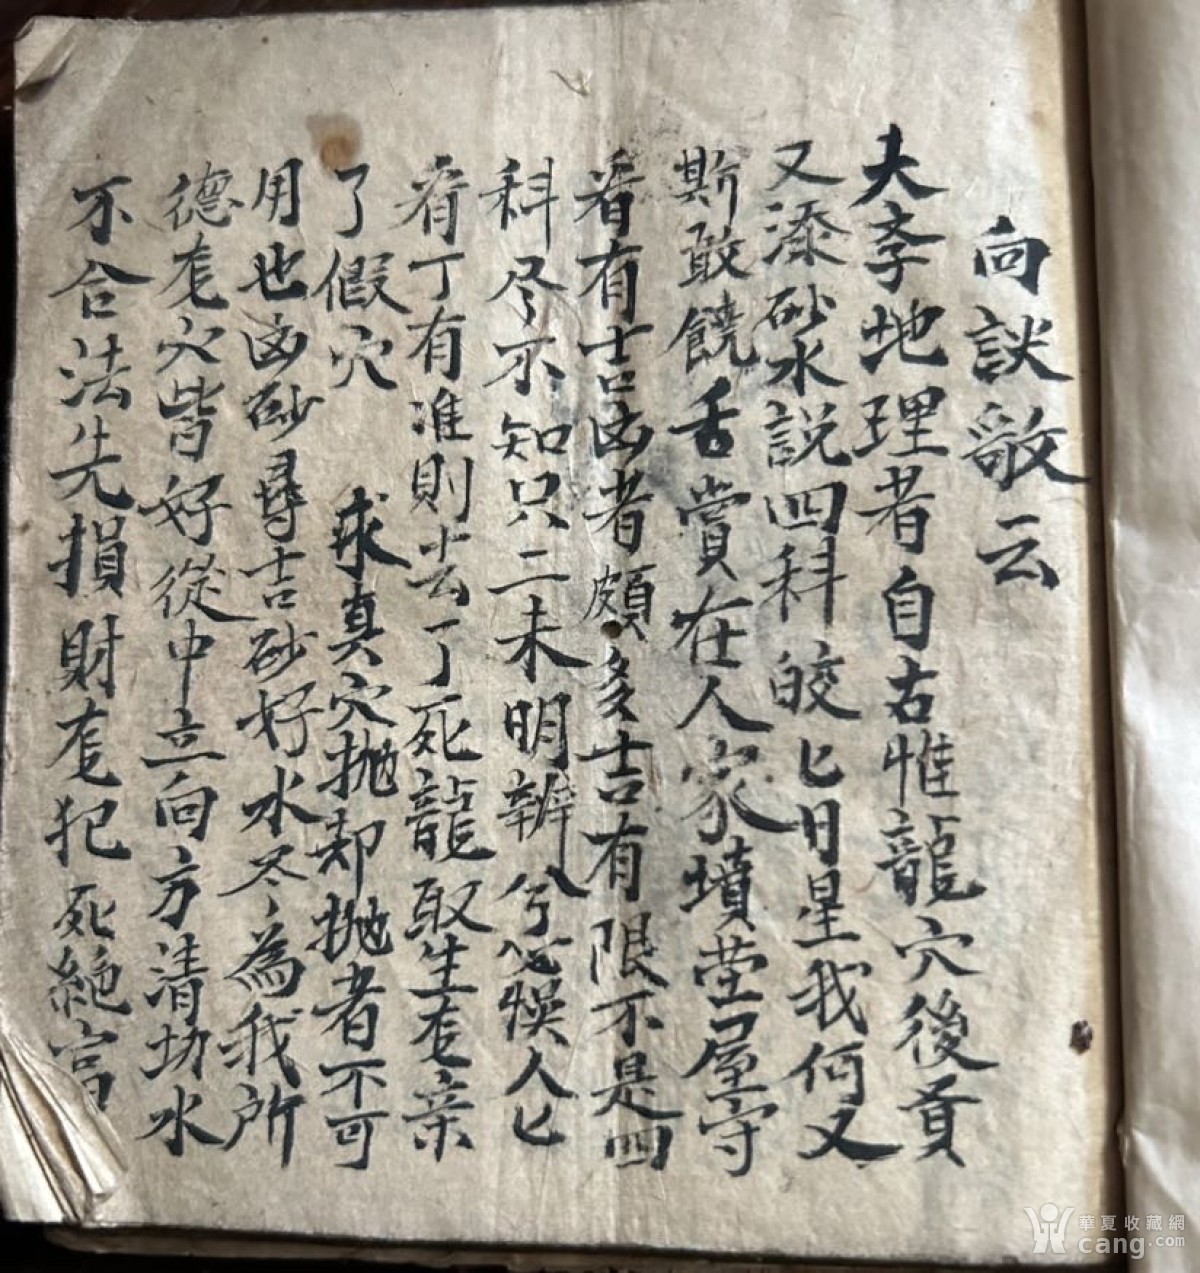 向談敬云
夫李地理者自古惟龍穴後
又添砂水説四科皎匕日星我何又
斯敢饒舌賞在人家墳塋屋守
看有吉凶者頗多吉有限不是四
科尽不知只二未明辨兮必悮人匕
看丁有准則去了死龍取生
了假穴 求真穴抛却抛者不可
用也凶砂尋吉砂好水尽為我所
德 穴皆好從中立向方清切水
不合法先損財 犯死絕宫
華夏收藏網
cang.com